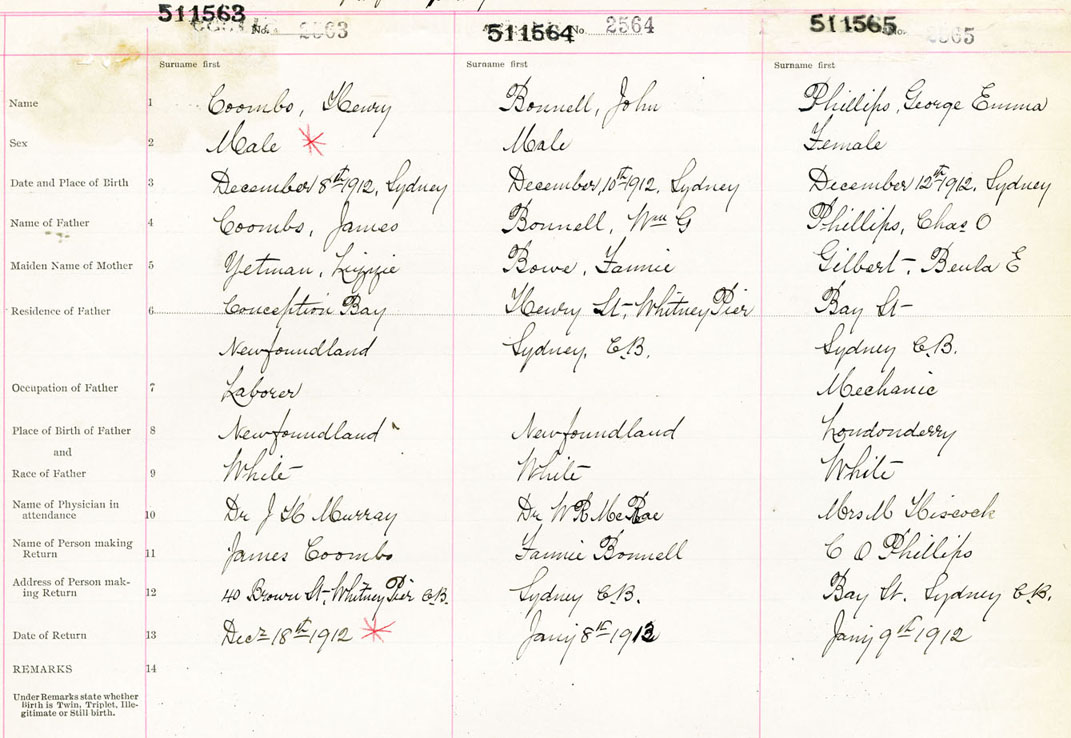 511563
No. 2563
511564
No. 2564
511565
No. 2565
Surname first
Surname first
Surname first
Name 1 Coombs, Henry Bonnell, John Phillips, George Emma
Sex 2 Male Male Female
Date and Place of Birth 3 December 8th 1912, Sydney December 10th 1912, Sydney December 12th 1912, Sydney
Name of Father 4 Coombs, James Bonnell, Wm G Phillips, Chas O
Maiden Name of Mother 5 Yetman, Lizzie Bowe, Fannie Gilbert, Beula E
Residence of Father 6 Conception Bay Henry St, Whitney Pier Bay St
Newfoundland Sydney, C.B. Sydney C.B.
Occupation of Father 7 Laborer Mechanic
Place of Birth of Father 8 Newfoundland Newfoundland Londonderry
and
Race of Father 9 White White White
Name of Physician in
attendance 10 Dr J H Murray Dr W R McRae Mrs M Hiscock
Name of Person making
Return 11 James Coombs Fannie Bonnell C O Phillips
Address of Person mak-
ing Return 12 40 Brown St, Whitney Pier C.B. Sydney C.B. Bay St. Sydney C.B.
Date of Return 13 Decr 18th 1912 Jany 8th 1913 Jany 9th 1912
REMARKS 14
Under Remarks state whether
Birth is Twin, Triplet, Ille-
gitimate or Still birth.